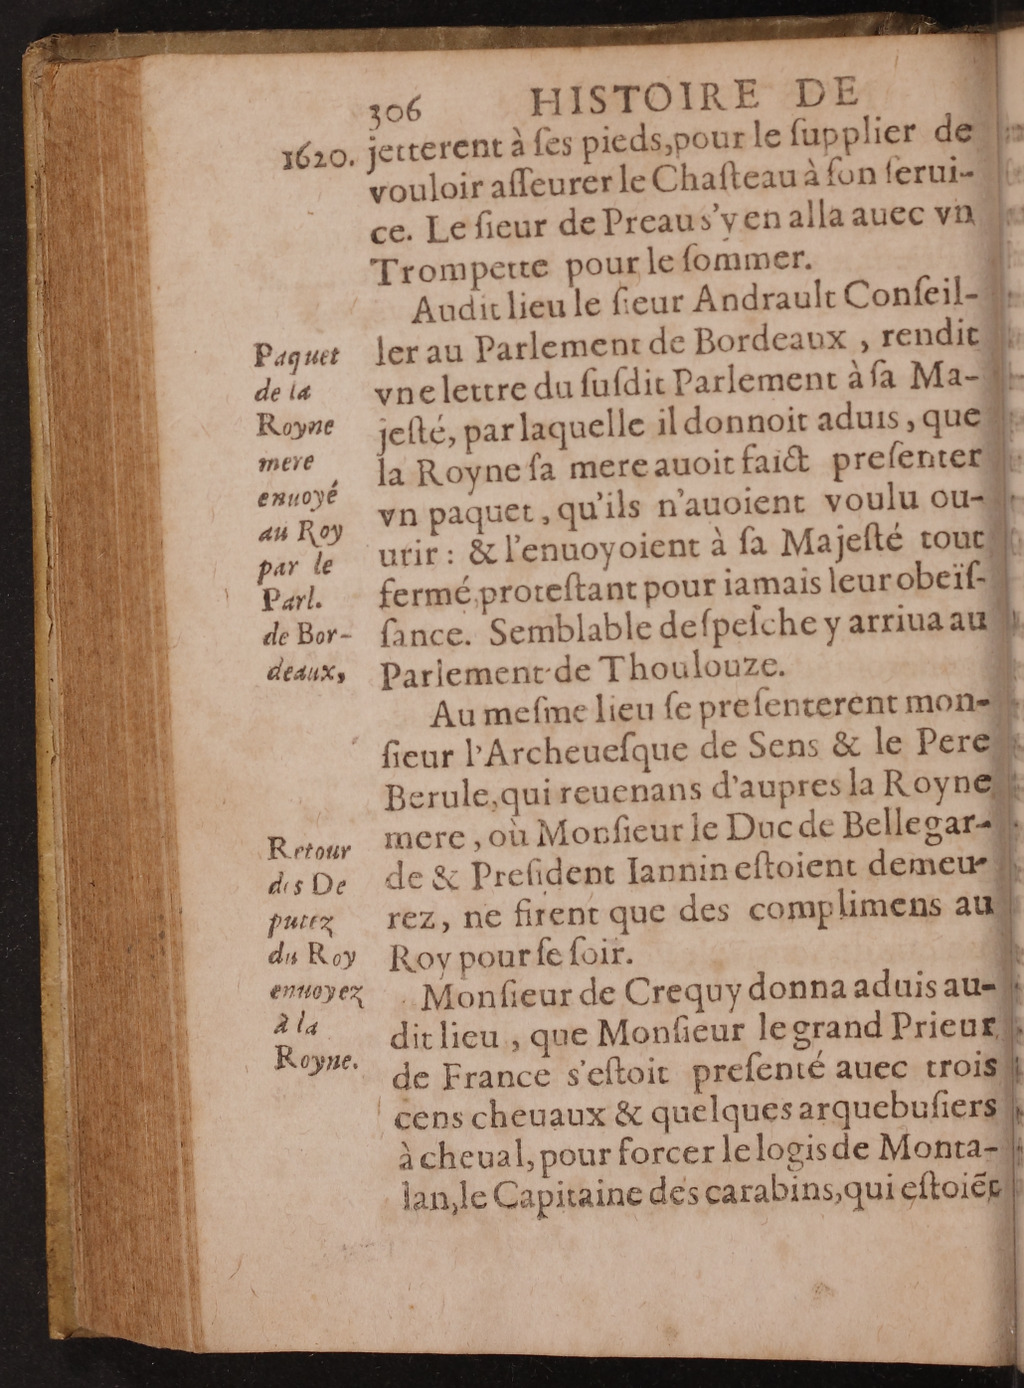 306 HISTOIRE DE
1620. jetterent à ſes pieds,pour le ſupplier de
vouloir aſſeurer le Chaſteau à ſon ſerui-
ce. Le ſieur de Preau s'y en alla auec vn
Trompette pour le ſommer.
Audit lieu le ſieur Andrault Conſeil-
ler au Parlement de Bordeaux , rendit
vne lettre du ſuſdit Parlement à ſa Ma-
jeſté, par laquelle il donnoit aduis , que
la Royne ſa mere auoit faict preſenter
vn paquet , qu'ils n'auoient voulu ou-
urir : & l'enuoyoient à ſa Majeſté tout
fermé,proteſtant pour iamais leur obeïſ-
ſance. Semblable deſpeſche y arriua au
Parlement de Thoulouze.
Paquet
de la
Royne
mere
enuoyé
au Roy
par le
Parl.
de Bor-
deaux,
Au meſme lieu ſe preſenterent mon-
ſieur l'Archeueſque de Sens & le Pere
Berule,qui reuenans d'aupres la Royne
mere , où Monſieur le Duc de Bellegar-
de & Preſident Iannin eſtoient demeu-
rez, ne firent que des complimens au
Roy pour ſe ſoir.
Retour
des De
putez
du Roy
enuoyez
à la
Royne.
Monſieur de Crequy donna aduis au-
dit lieu , que Monſieur le grand Prieur
de France s'eſtoit preſenté auec trois
cens cheuaux & quelques arquebuſiers
à cheual, pour forcer le logis de Monta-
lan,le Capitaine des carabins,qui eſtoiẽt